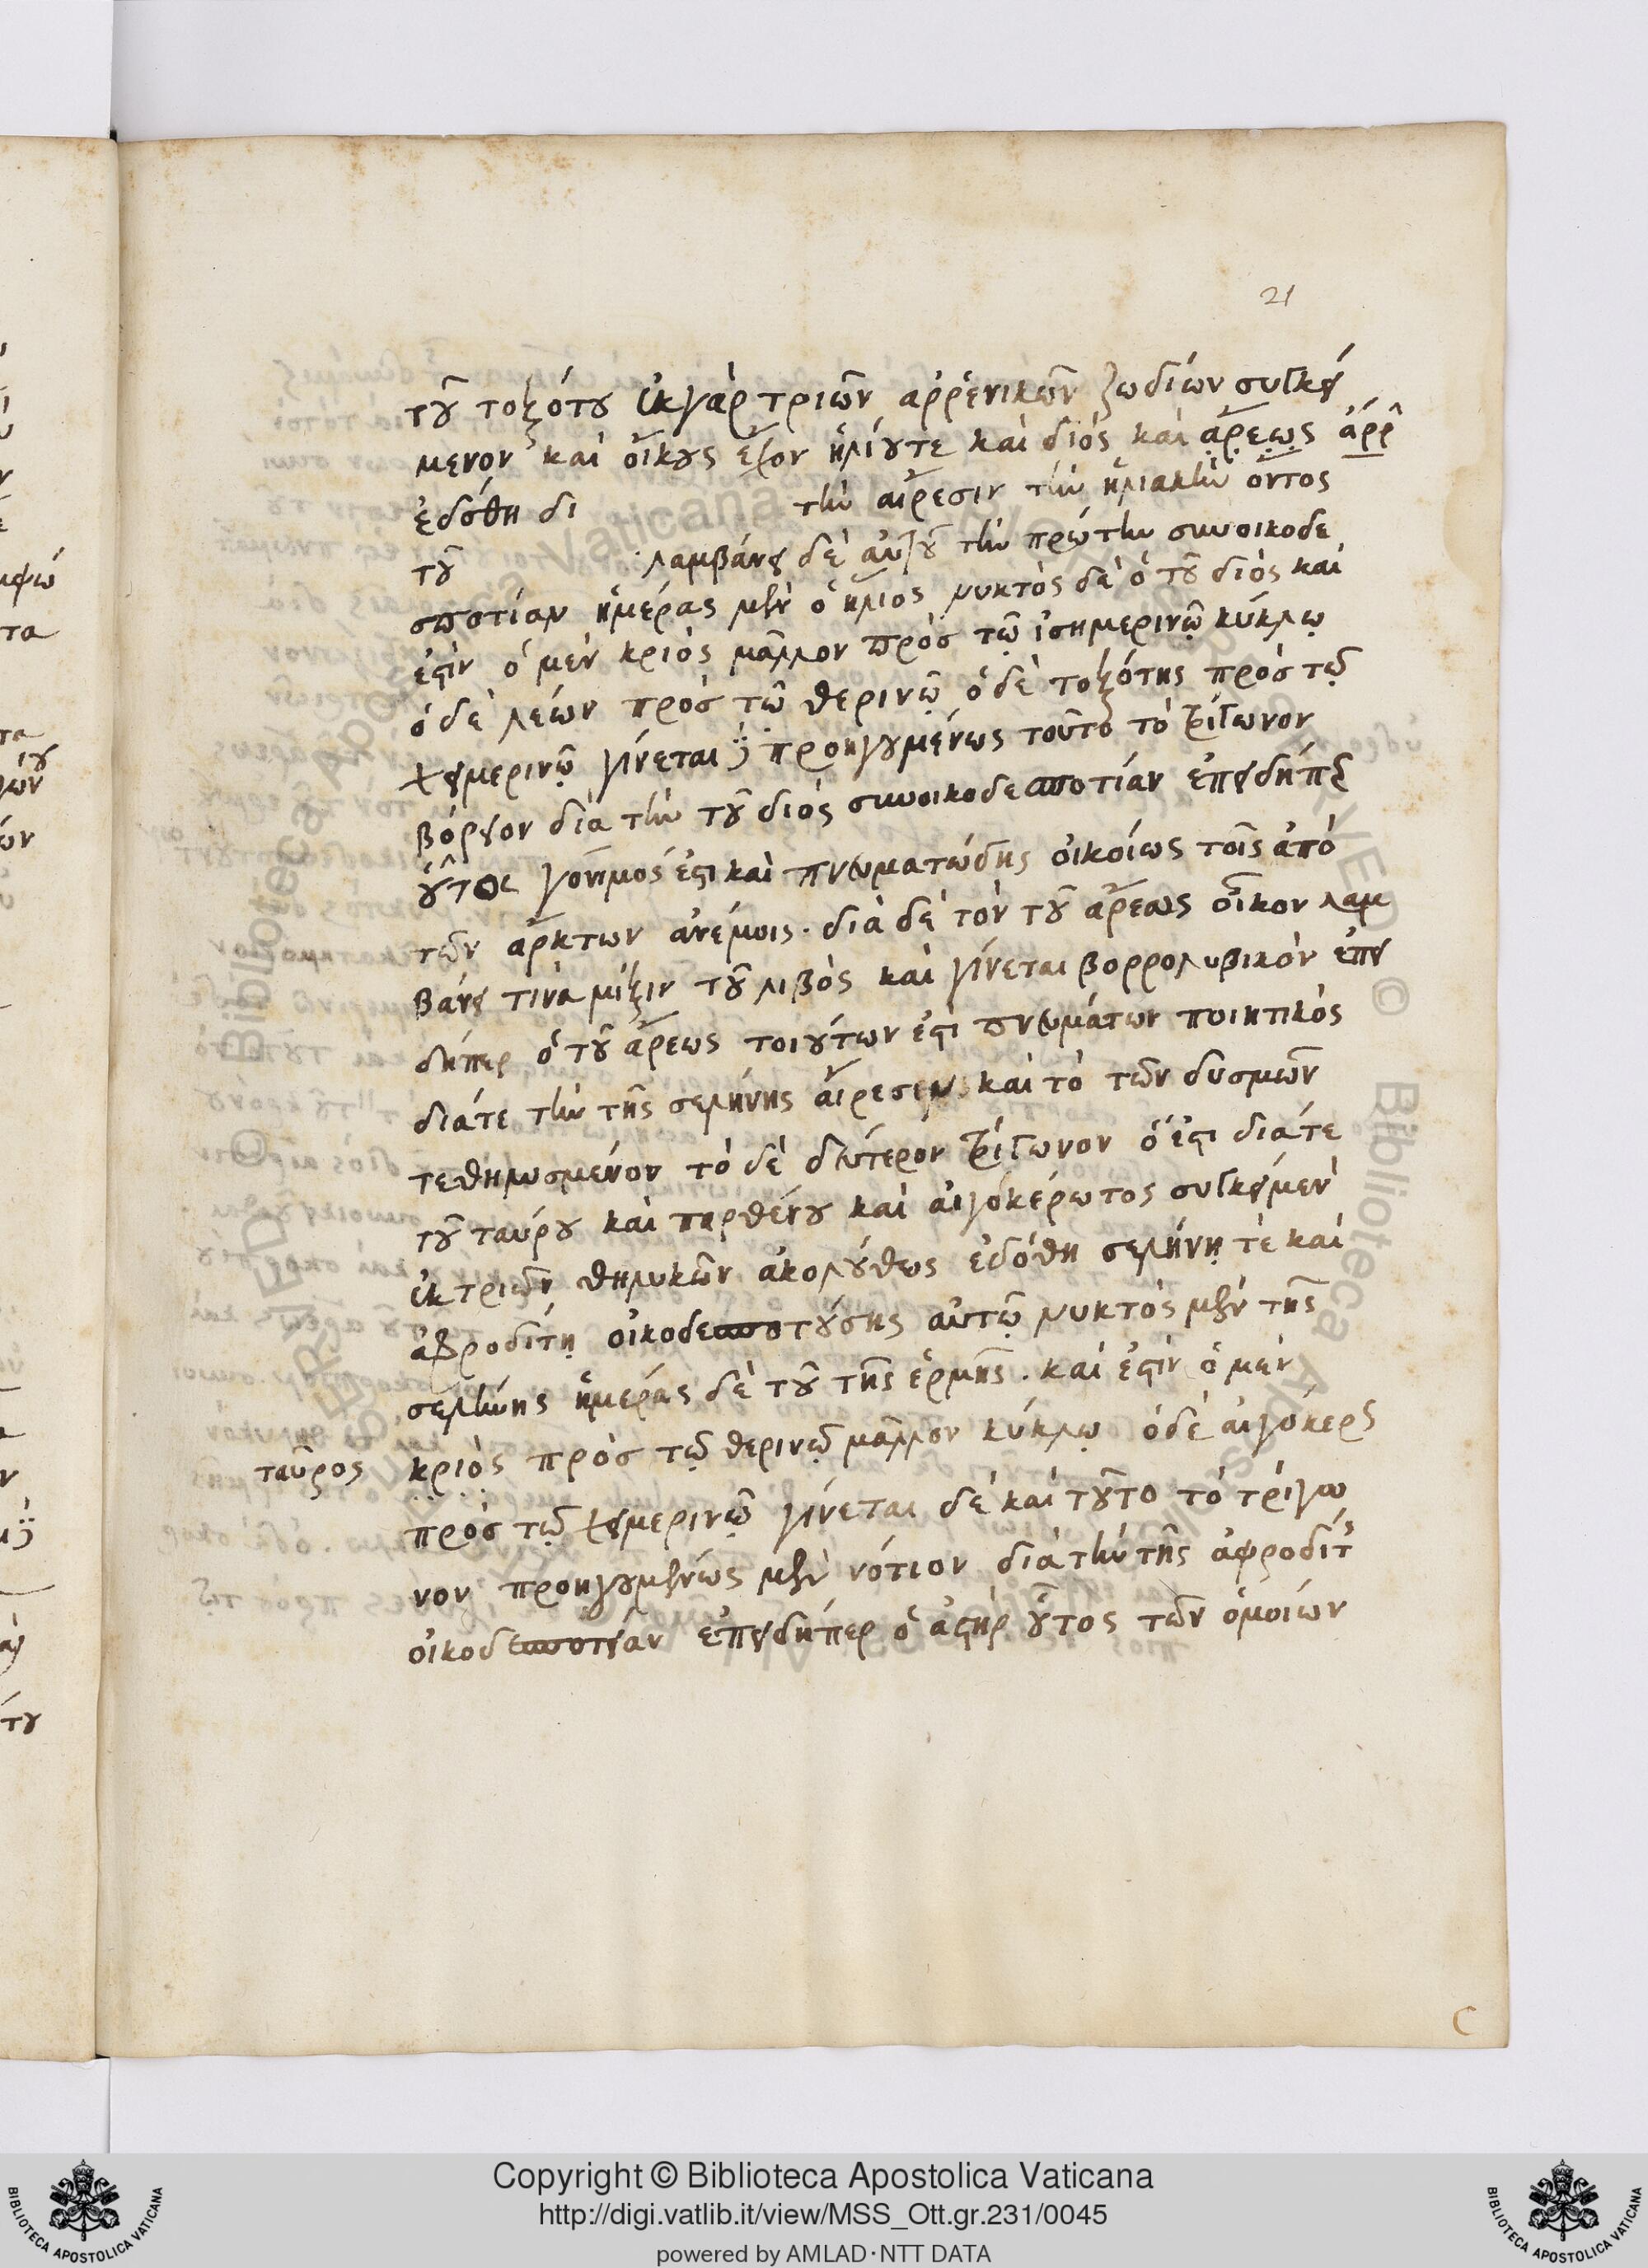 21
τοῦ τοξότου ἐκ γὰρ τριῶν ἀρρενικῶν ζωδίων συγκεί
μενον καὶ οἴκους ἔχον ἡλίου τε καὶ διός καὶ ἄρεως ἀρρ
ἐδόθη δι τὴν αἵρεσιν τὴν ἡλιακὴν ὄντος
τοῦ λαμβάνει δὲ αὐτοῦ τὴν πρώτην συνοικοδε
σποτίαν ἡμέρας μὲν ὁ ἥλιος νυκτὸς δὲ ὁ τοῦ διός καί
ἐστιν ὁ μὲν κριὸς μᾶλλον πρὸς τῷ ἰσημερινῷ κύκλῳ
ὁ δὲ λέων πρὸς τῷ θερινῷ ὁ δὲ τοξότης πρὸς τῷ
χειμερινῷ γίνεται προηγουμένως τοῦτο τὸ τρίγωνον
βόρειον διὰ τὴν τοῦ διός συνοικοδεσποτίαν ἐπειδήπερ
οὗτος γόνιμός ἐστι καὶ πνευματώδης οἰκείως τοῖς ἀπὸ
τῶν ἄρκτων ἀνέμοις. διὰ δὲ τὸν τοῦ ἄρεως οἶκον λαμ
βάνει τινὰ μίξιν τοῦ λιβὸς καὶ γίνεται βορρολυβικὸν ἐπει
δήπερ ὁ τοῦ ἄρεως τοιούτων ἐστὶ πνευμάτων ποιητικὸς
διά τε τὴν τῆς σελήνης αἵρεσιν καὶ τὸ τῶν δυσμῶν
τεθηλυσμένον τὸ δὲ δεύτερον τρίγωνον ὅ ἐστι διά τε
τοῦ ταύρου καὶ παρθένου καὶ αἰγόκέρωτος συγκείμεν
ἐκ τριῶν θηλυκῶν ἀκολούθως ἐδόθη σελήνῃ τε καὶ
ἀφροδίτῃ οἰκοδεσποτούσης αὐτῷ νυκτὸς μὲν τῆς
σελήνης ἡμέρας δὲ τοῦ τῆς ἑρμῆς. καί ἐστιν ὁ μὲν
ταῦρος κριὸς πρὸς τῷ θερινῷ μᾶλλον κύκλῳ ὁ δὲ αἰγόκερς
πρὸς τῷ χειμερινῷ γίνεται δὲ καὶ τοῦτο τὸ τρίγω
νον προηγουμένως μὲν νότιον διὰ τὴν τῆς ἀφροδίτ
οἰκοδεσποτείαν ἐπειδήπερ ὁ ἀστὴρ οὗτος τῶν ὁμοίων
Copyright © Biblioteca Apostolica Vaticana
http://digi.vatlib.it/view/MSS_Ott.gr.231/0045
powered by AMLAD·NTT DATA
BIBLIOTECA APOSTOLICA VATICANA
BIBLIOTECA APOSTOLICA VATICANA